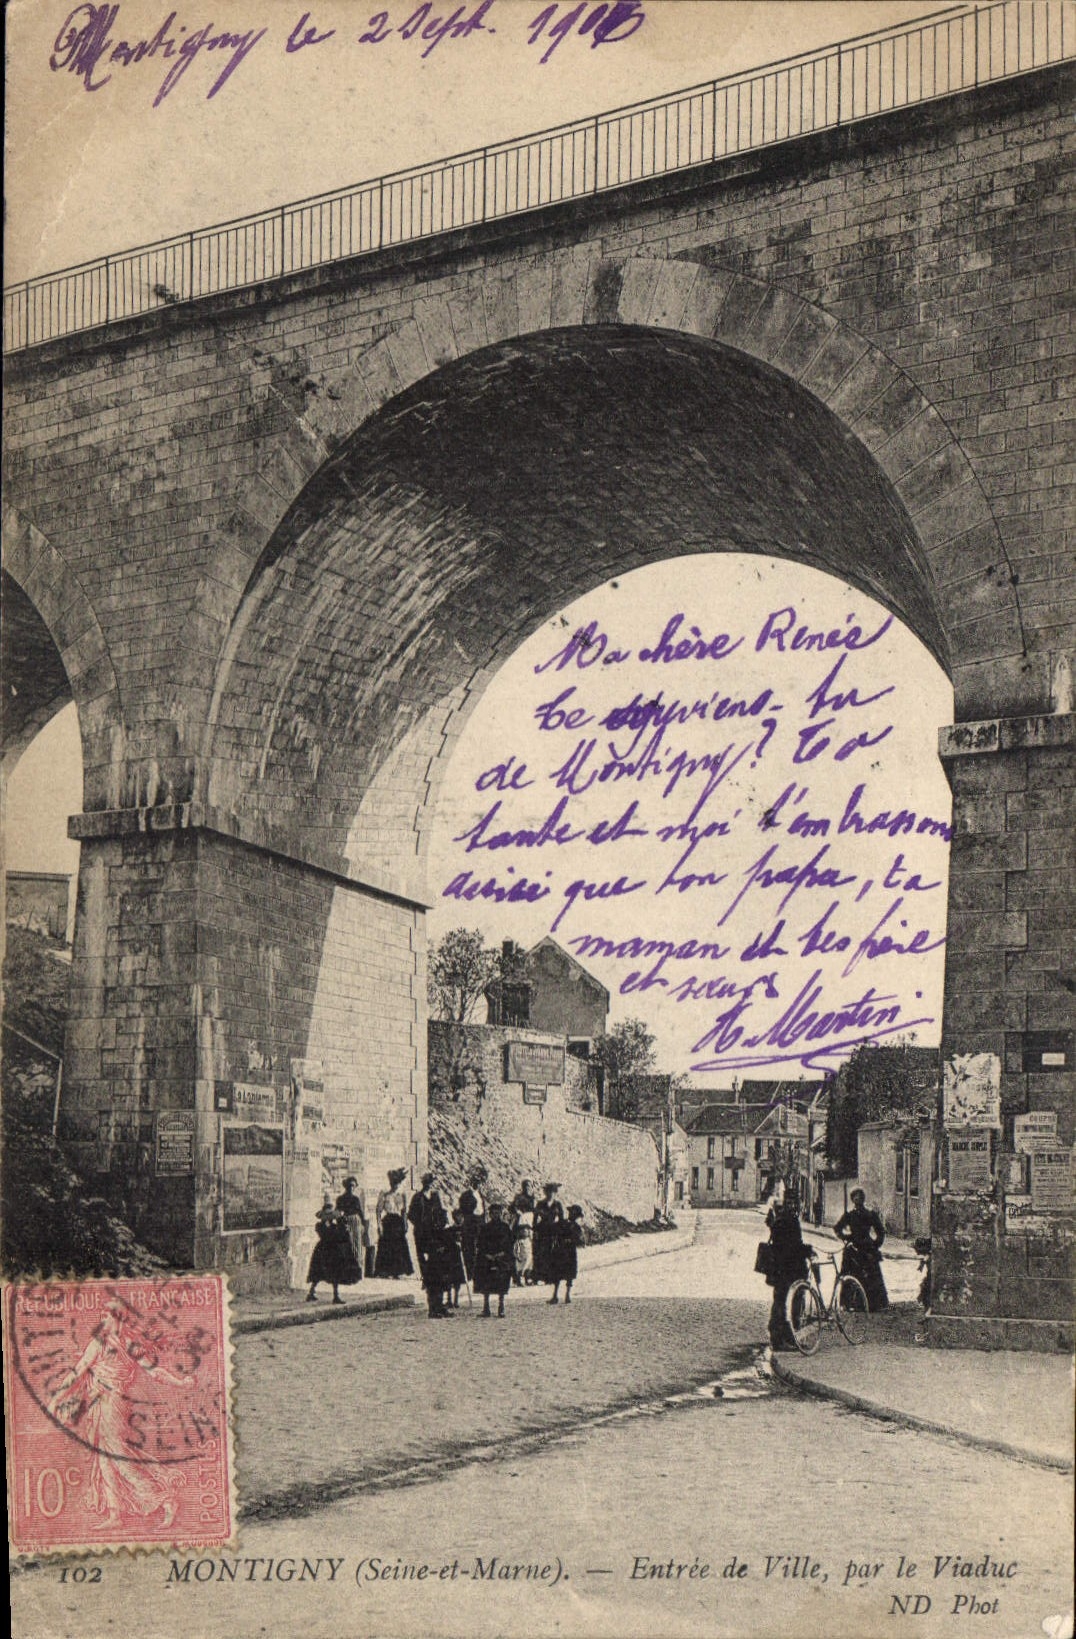 Montigny le 2 Sept. 1906
Ma chère Renée
te souviens-tu
de Montigny? Ta
tante et moi t'embrassons
ainsi que ton papa, ta
maman et tes frère
et sœurs
H. Martin
La Lanterne
RÉPUBLIQUE FRANÇAISE
MONTIGNY
SEINE
10c
POSTES
102 MONTIGNY (Seine-et-Marne). — Entrée de Ville, par le Viaduc
ND Phot